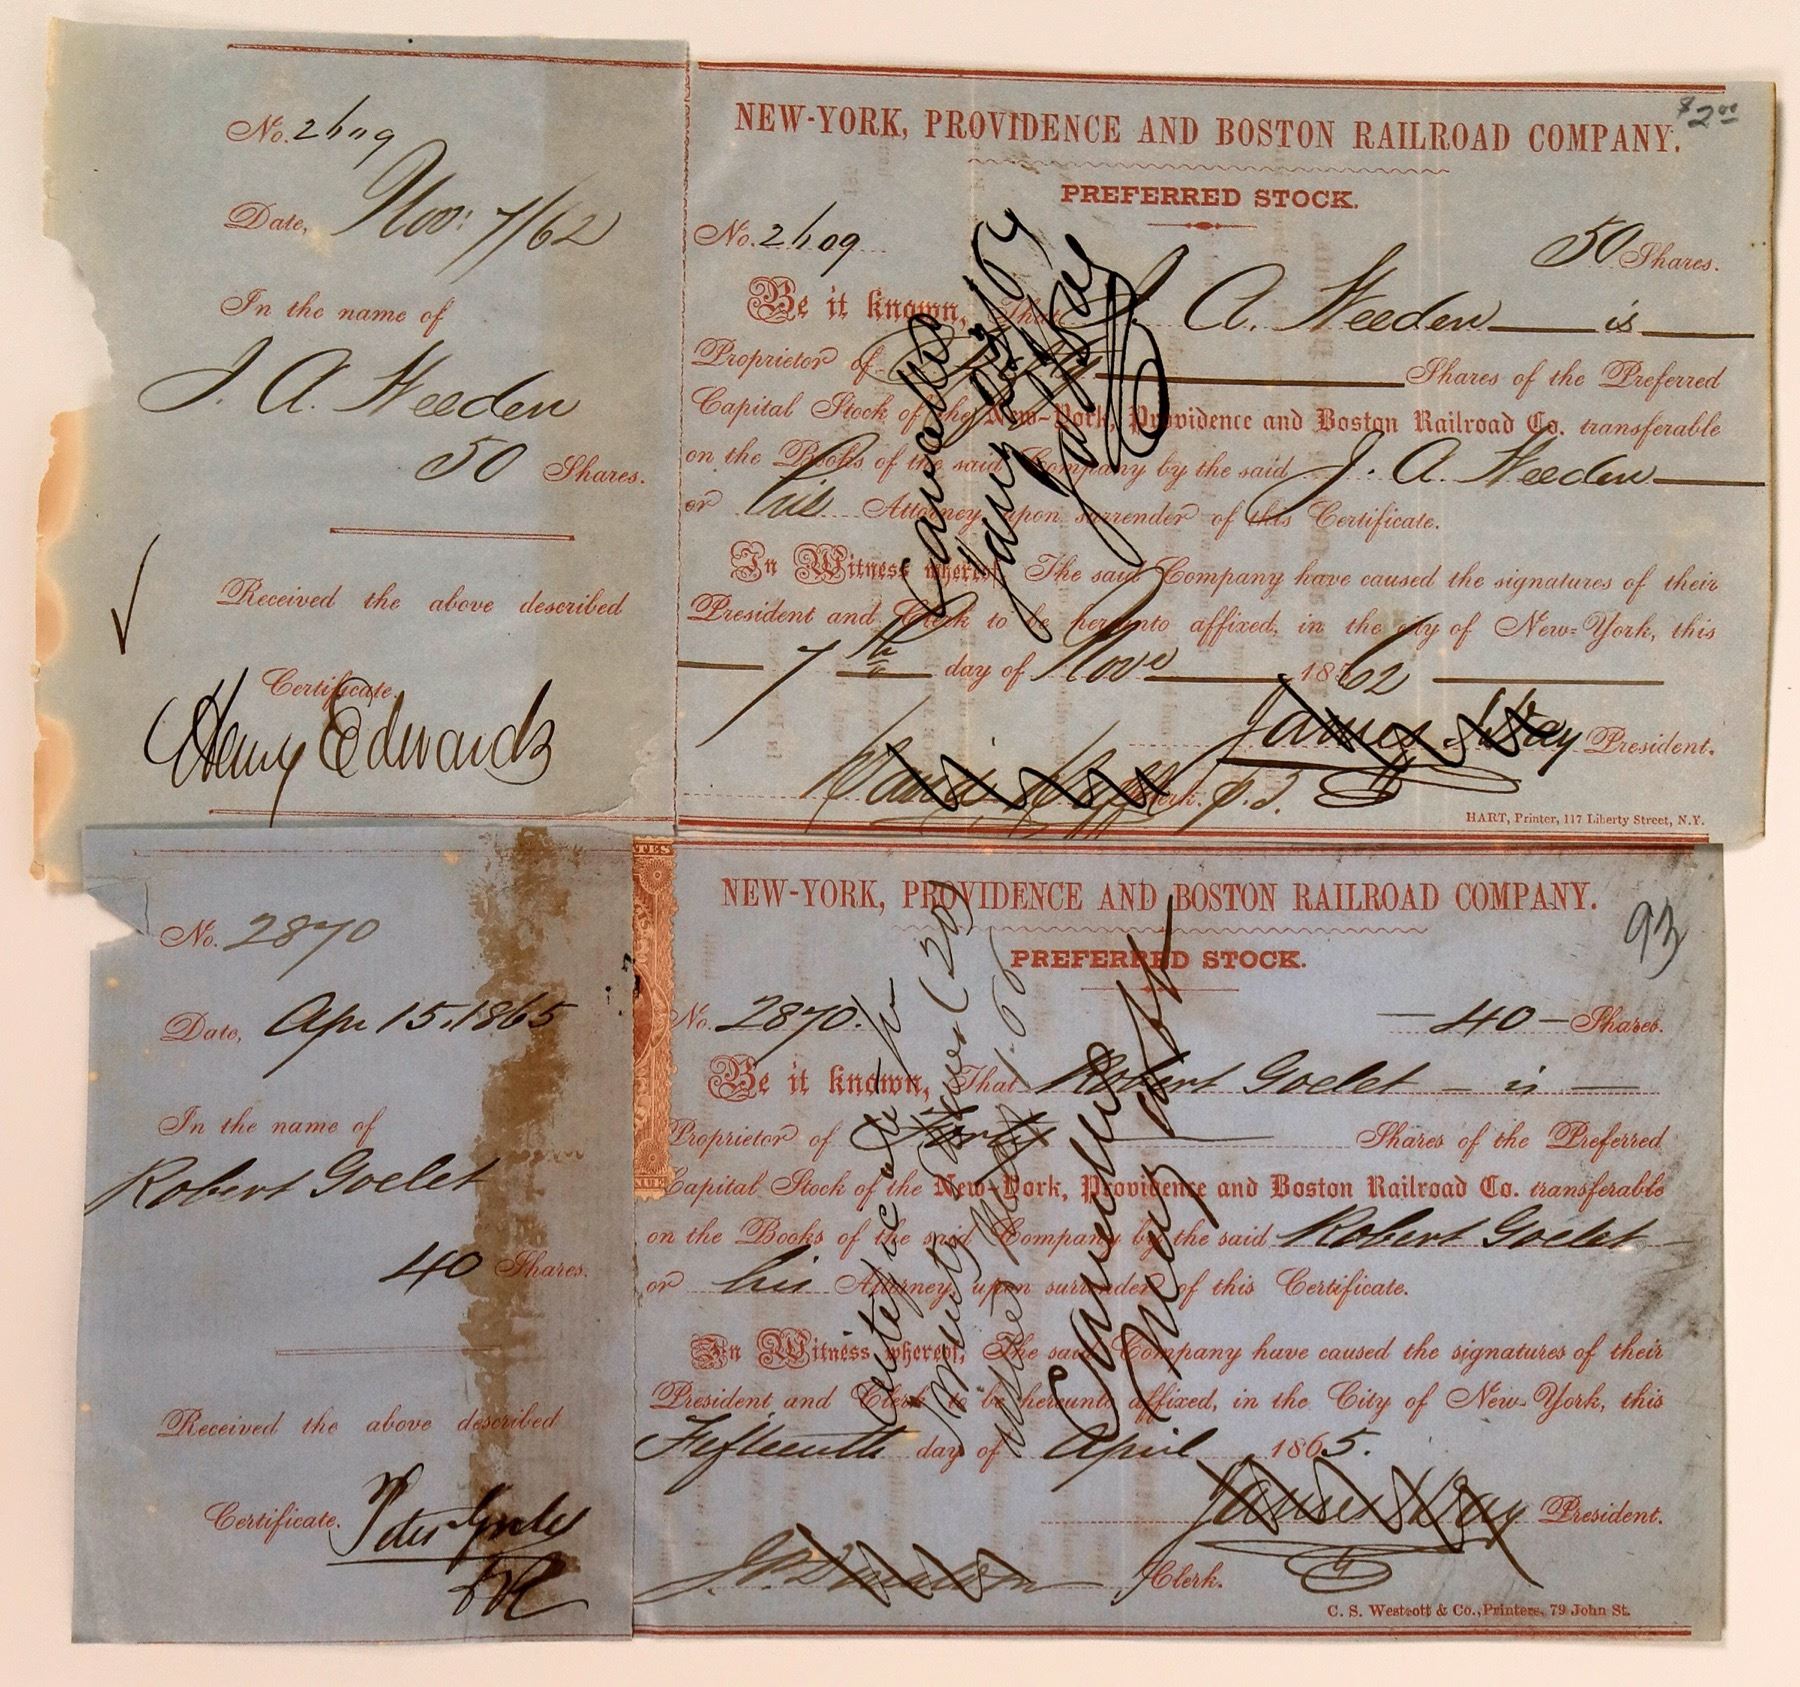 No. 2609
Date, Nov: 7/62
In the name of
J. A. Weeden
50 Shares.
Received the above described
Certificate.
Henry Edwards
$2.00
NEW-YORK, PROVIDENCE AND BOSTON RAILROAD COMPANY.
PREFERRED STOCK.
No. 2609
50 Shares.
Be it known, That J. A. Weeden is
Proprietor of Fifty Shares of the Preferred
Capital Stock of the New-York, Providence and Boston Railroad Co. transferable
on the Books of the said Company by the said J. A. Weeden
or his Attorney upon surrender of this Certificate.
In Witness whereof, The said Company have caused the signatures of their
President and Clerk to be hereunto affixed, in the city of New-York, this
7th day of Nove 1862
President.
Clerk. P. T.
Cancelled
HART, Printer, 117 Liberty Street, N.Y.
No. 2870
Date, Apr 15, 1865
In the name of
Robert Goelet
40 Shares.
Received the above described
Certificate. Peter Goelet
93
NEW-YORK, PROVIDENCE AND BOSTON RAILROAD COMPANY.
PREFERRED STOCK.
No. 2870.
40 Shares.
Be it known, That Robert Goelet is
Proprietor of Forty Shares of the Preferred
Capital Stock of the New-York, Providence and Boston Railroad Co. transferable
on the Books of the said Company by the said Robert Goelet
or his Attorney upon surrender of this Certificate.
In Witness whereof, The said Company have caused the signatures of their
President and Clerk to be hereunto affixed, in the City of New-York, this
Fifteenth day of April 1865.
President.
Clerk.
Cancelled
C. S. Westcott & Co., Printers, 79 John St.